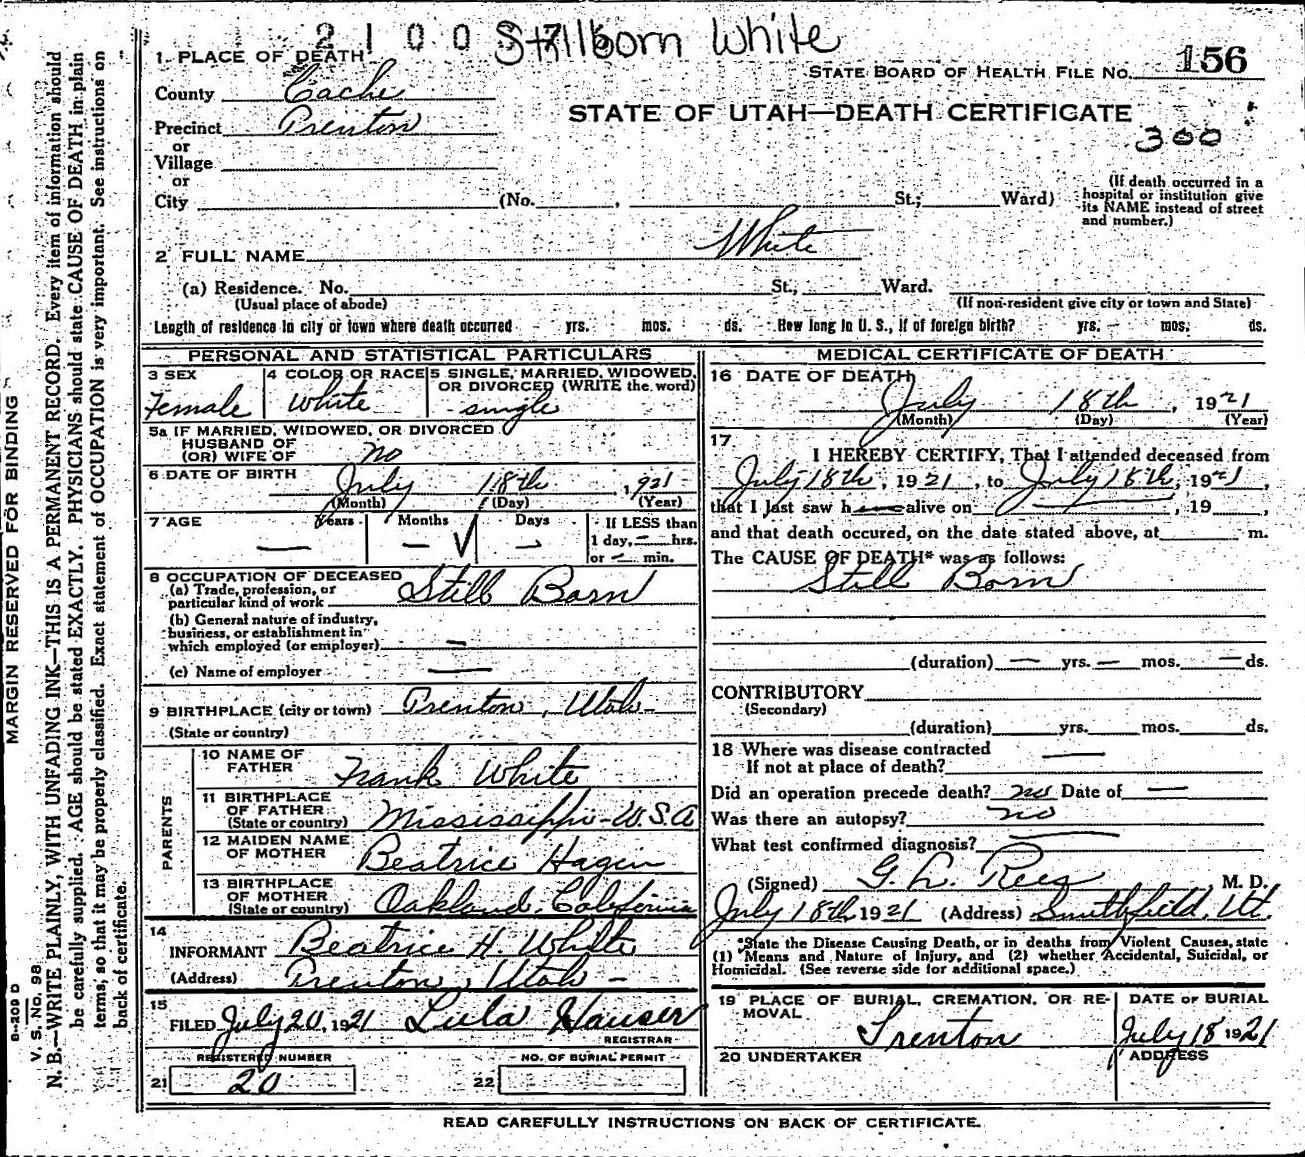 2 1 0 0 Stillborn White
1 PLACE OF DEATH
STATE BOARD OF HEALTH FILE No. 156
County Cache
STATE OF UTAH—DEATH CERTIFICATE
Precinct Trenton
300
or
Village
or
City (No. , St.; Ward)
(If death occurred in a hospital or institution give its NAME instead of street and number.)
2 FULL NAME White
(a) Residence. No. St., Ward.
(Usual place of abode) (If non-resident give city or town and State)
Length of residence in city or town where death occurred yrs. mos. ds. How long in U. S., if of foreign birth? yrs. mos. ds.
PERSONAL AND STATISTICAL PARTICULARS
3 SEX Female
4 COLOR OR RACE White
5 SINGLE, MARRIED, WIDOWED, OR DIVORCED (WRITE the word) single
5a IF MARRIED, WIDOWED, OR DIVORCED
HUSBAND OF
(OR) WIFE OF no
6 DATE OF BIRTH July 18th, 1921
(Month) (Day) (Year)
7 AGE Years — Months — Days —
If LESS than
1 day, — hrs.
or — min.
8 OCCUPATION OF DECEASED
(a) Trade, profession, or
particular kind of work Still Born
(b) General nature of industry,
business, or establishment in
which employed (or employer) —
(c) Name of employer —
9 BIRTHPLACE (city or town) Trenton, Utah
(State or country)
PARENTS
10 NAME OF FATHER Frank White
11 BIRTHPLACE OF FATHER
(State or country) Mississippi-U.S.A
12 MAIDEN NAME OF MOTHER Beatrice Hagin
13 BIRTHPLACE OF MOTHER
(State or country) Oakland, California
14
INFORMANT Beatrice H. White
(Address) Trenton, Utah
15
FILED July 20, 1921 Lula Hauser
REGISTRAR
REGISTERED NUMBER NO. OF BURIAL PERMIT
21 20 22
MEDICAL CERTIFICATE OF DEATH
16 DATE OF DEATH
July 18th, 1921
(Month) (Day) (Year)
17
I HEREBY CERTIFY, That I attended deceased from
July 18th, 1921, to July 18th, 1921,
that I last saw h— alive on —, 19 ,
and that death occured, on the date stated above, at m.
The CAUSE OF DEATH* was as follows:
Still Born
(duration) — yrs. — mos. — ds.
CONTRIBUTORY
(Secondary)
(duration) yrs. mos. ds.
18 Where was disease contracted
If not at place of death? —
Did an operation precede death? no Date of —
Was there an autopsy? no
What test confirmed diagnosis? —
(Signed) G. L. Rees M. D.
July 18th 1921 (Address) Smithfield, Ut.
*State the Disease Causing Death, or in deaths from Violent Causes, state
(1) Means and Nature of Injury, and (2) whether Accidental, Suicidal, or
Homicidal. (See reverse side for additional space.)
19 PLACE OF BURIAL, CREMATION, OR REMOVAL
Trenton
DATE OF BURIAL
July 18 1921
20 UNDERTAKER
ADDRESS
READ CAREFULLY INSTRUCTIONS ON BACK OF CERTIFICATE.
MARGIN RESERVED FOR BINDING
B-209 D
V. S. No. 98
N. B.—WRITE PLAINLY, WITH UNFADING INK—THIS IS A PERMANENT RECORD. Every item of information should
be carefully supplied. AGE should be stated EXACTLY. PHYSICIANS should state CAUSE OF DEATH in plain
terms, so that it may be properly classified. Exact statement of OCCUPATION is very important. See instructions on
back of certificate.